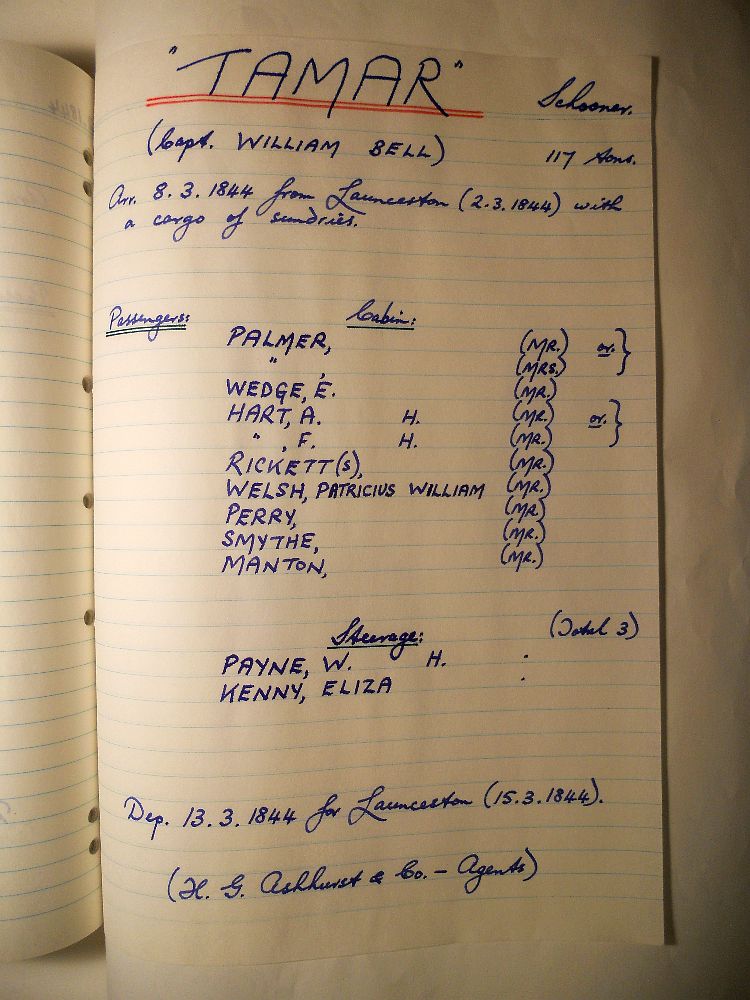 "TAMAR" Schooner.
(Capt. WILLIAM BELL) 117 tons.
Arr. 8.3.1844 from Launceston (2.3.1844) with
a cargo of sundries.
Passengers: Cabin:
PALMER, (MR.) or. }
" , (MRS.)
WEDGE, E. (MR.)
HART, A. H. (MR.) or. }
" , F. H. (MR.)
RICKETT(S), (MR.)
WELSH, PATRICIUS WILLIAM (MR.)
PERRY, (MR.)
SMYTHE, (MR.)
MANTON, (MR.)
Steerage: (Total 3)
PAYNE, W. H. :
KENNY, ELIZA
Dep. 13.3.1844 for Launceston (15.3.1844).
(H. G. Ashhurst & Co. - Agents)